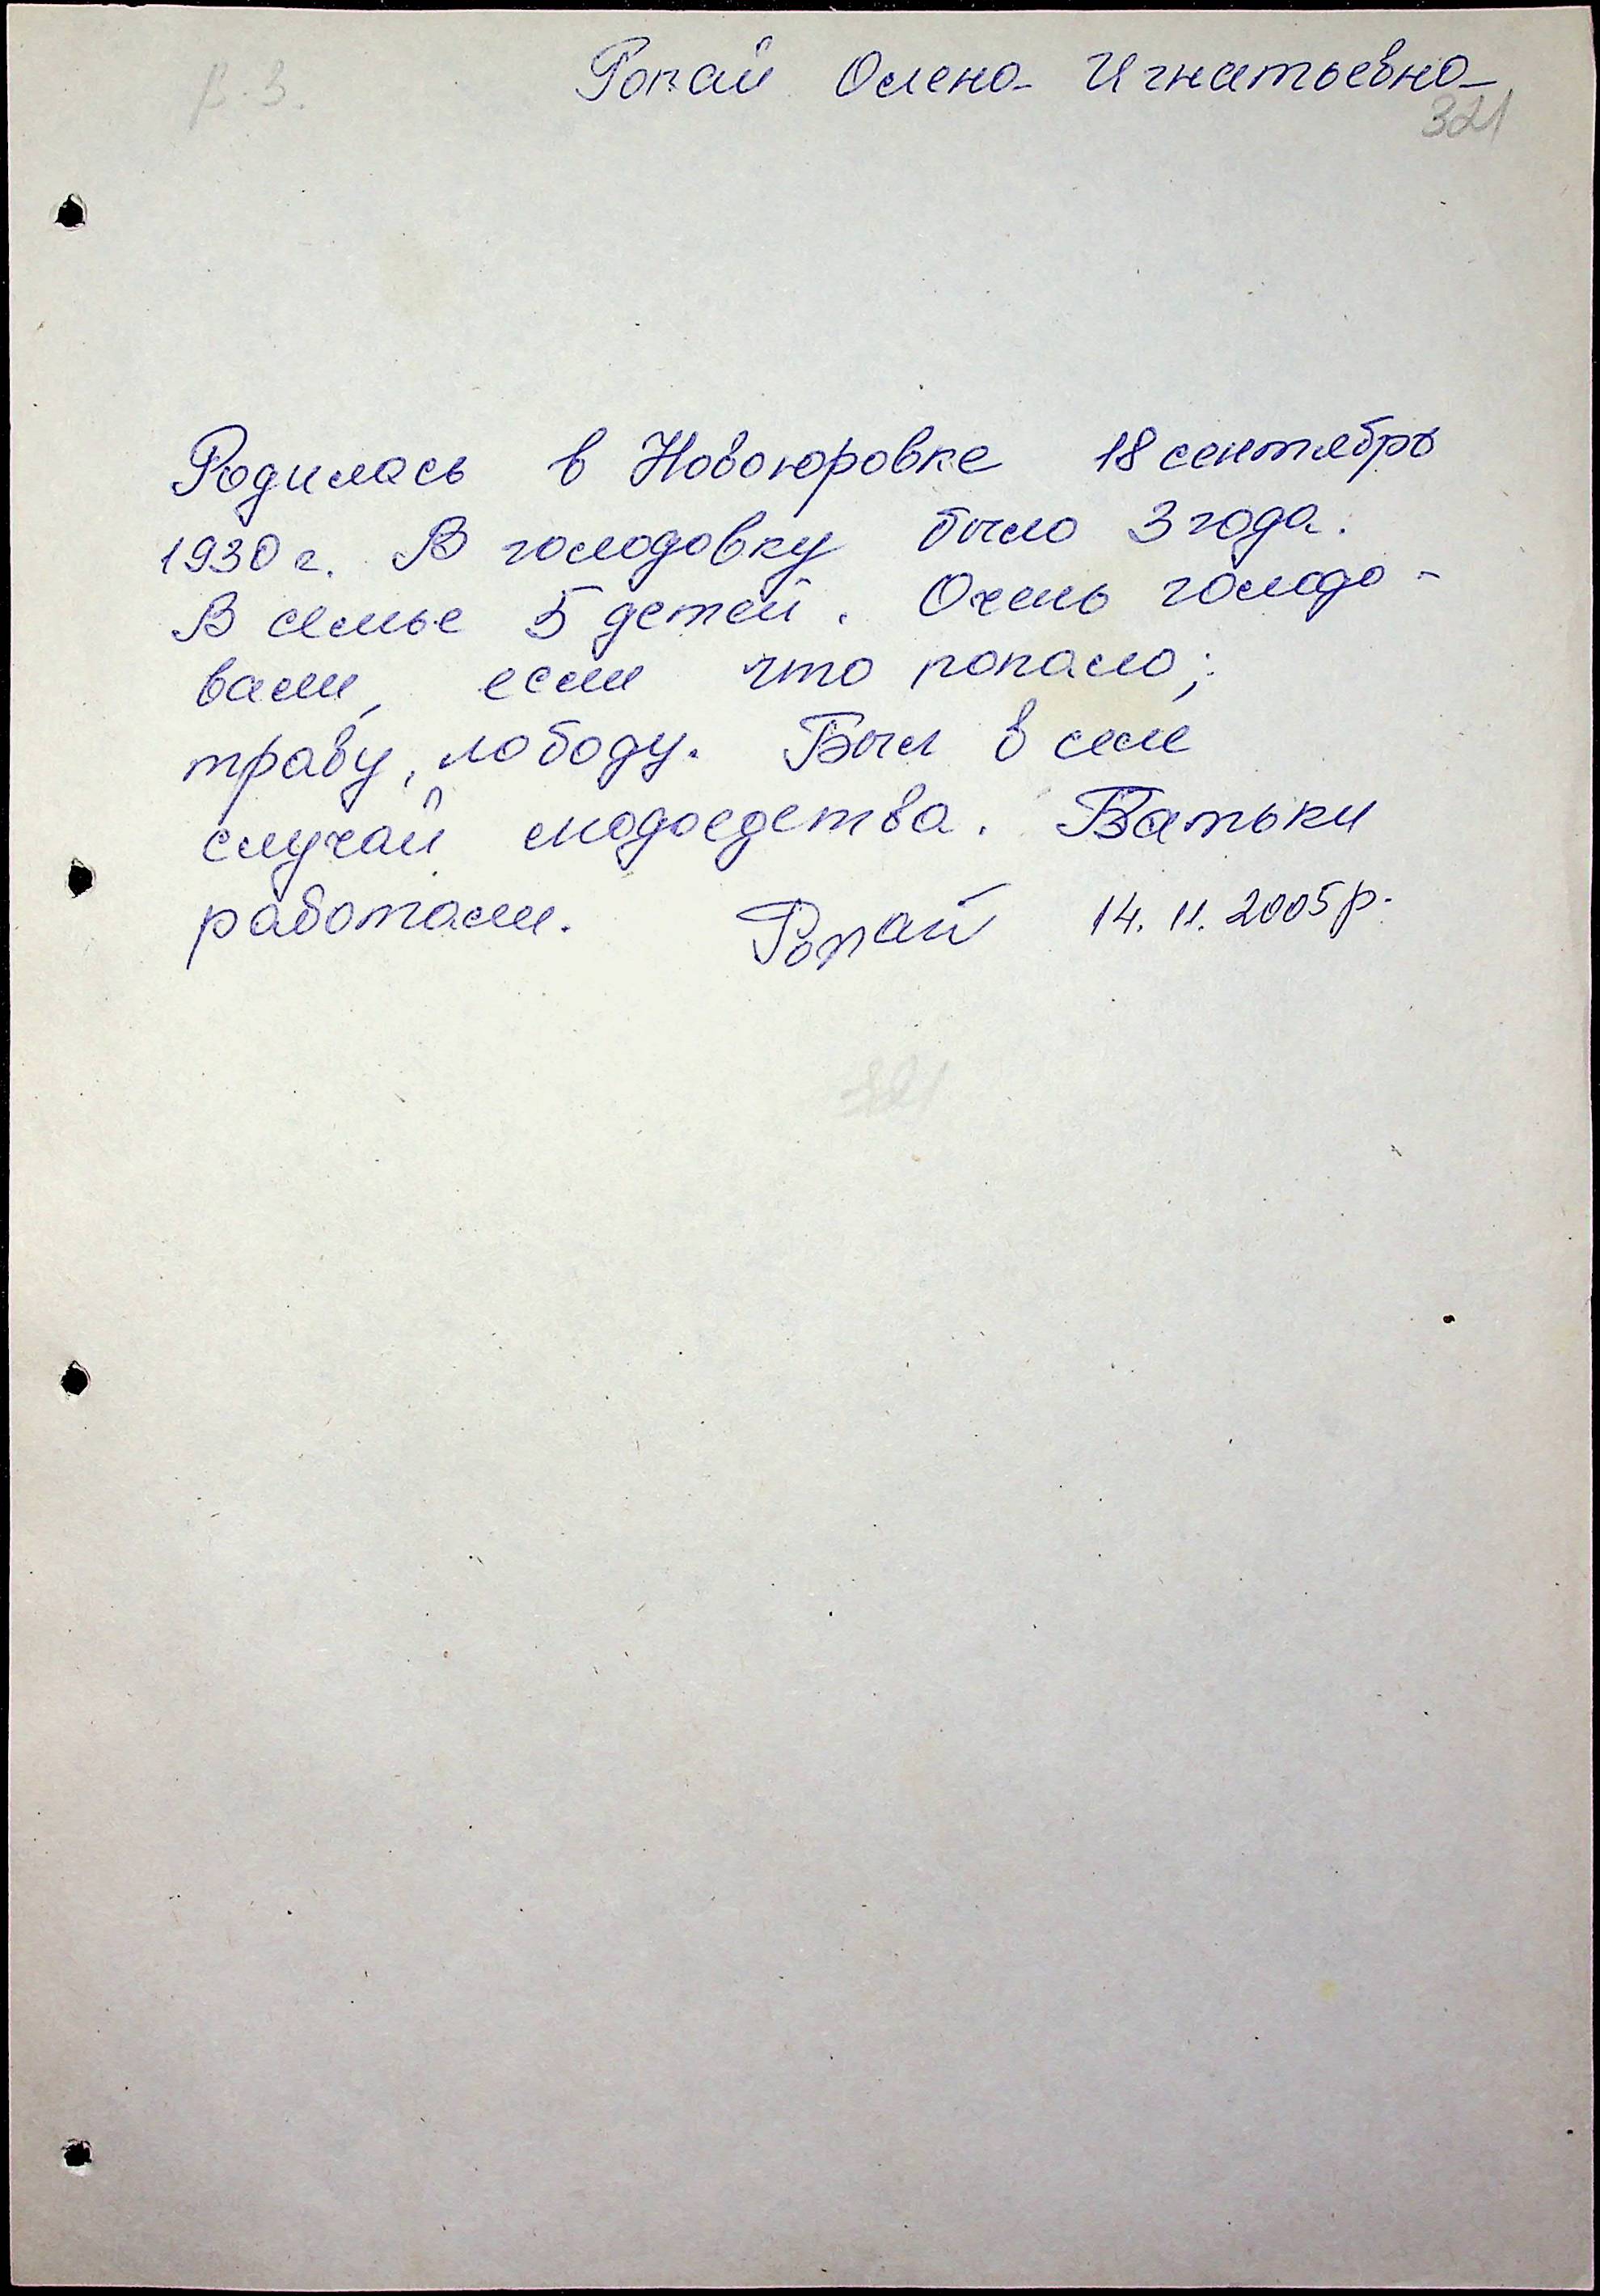 Ропай Олена Игнатьевна
321
Родилась в Новоюровке 18 сентября
1930 г. В голодовку было 3 года.
В семье 5 детей. Очень голодо-
вали, если что попало;
траву, лободу. Был в селе
случай людоедства. Батьки
работали. Ропай 14.11.2005р.
321